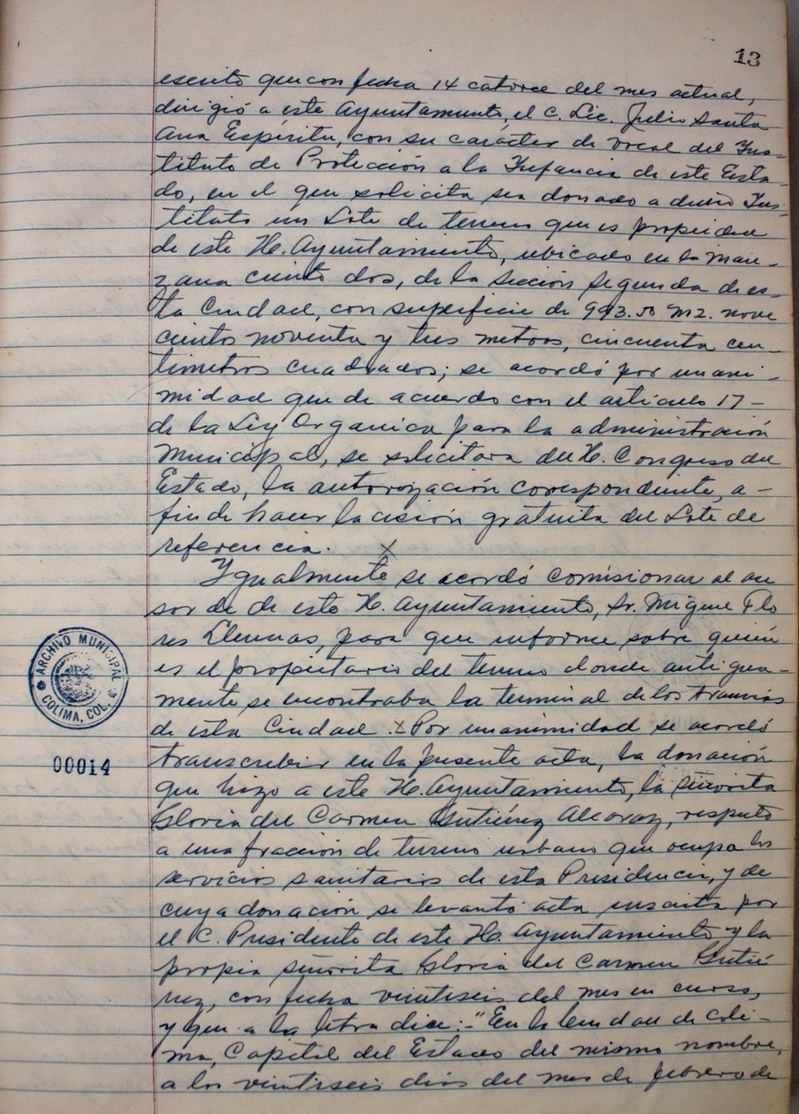 13
escrito que con fecha 14 catorce del mes actual,
dirigió a este Ayuntamiento, el C. Lic. Julio Santa
Ana Espíritu, con su carácter de vocal del Ins-
tituto de Protección a la Infancia de este Esta-
do, en el que solicita sea donado a dicho Ins-
tituto un Lote de terreno que es propiedad
de este H. Ayuntamiento, ubicado en la man-
zana ciento dos, de la sección segunda de es-
ta Ciudad, con superficie de 993.50 m2. nove
cientos noventa y tres metros, cincuenta cen-
tímetros cuadrados; se acordó por unani-
midad que de acuerdo con el artículo 17-
de la Ley Organica para la administración
Municipal, se solicitara del H. Congreso del
Estado, la autorización correspondiente, a-
fin de hacer la cesión gratuita del Lote de
referencia. X
Ygualmente se acordó comisionar al
sor de de este H. Ayuntamiento, Sr. Miguel Flo
res Llerenas, para que informe sobre quién
es el propietario del terreno donde antigua-
mente se encontraba la terminal de los tranvías
de esta Ciudad. X Por unanimidad se acordó
transcribir en la presente acta, la donación
que hizo a este H. Ayuntamiento, la señorita
Gloria del Carmen Gutiérrez Alcaraz, respecto
a una fracción de terreno urbano que ocupa los
servicios sanitarios de esta Presidencia, y de
cuya donación se levantó acta suscrita por
el C. Presidente de este H. Ayuntamiento y la
propia señorita Gloria del Carmen Gutié
rrez, con fecha veintiseis del mes en curso,
y que a la letra dice:-"En la Ciudad de Coli-
ma, Capital del Estado del mismo nombre,
a los veintiseis dias del mes de febrero de
ARCHIVO MUNICIPAL
COLIMA, COL.
00014